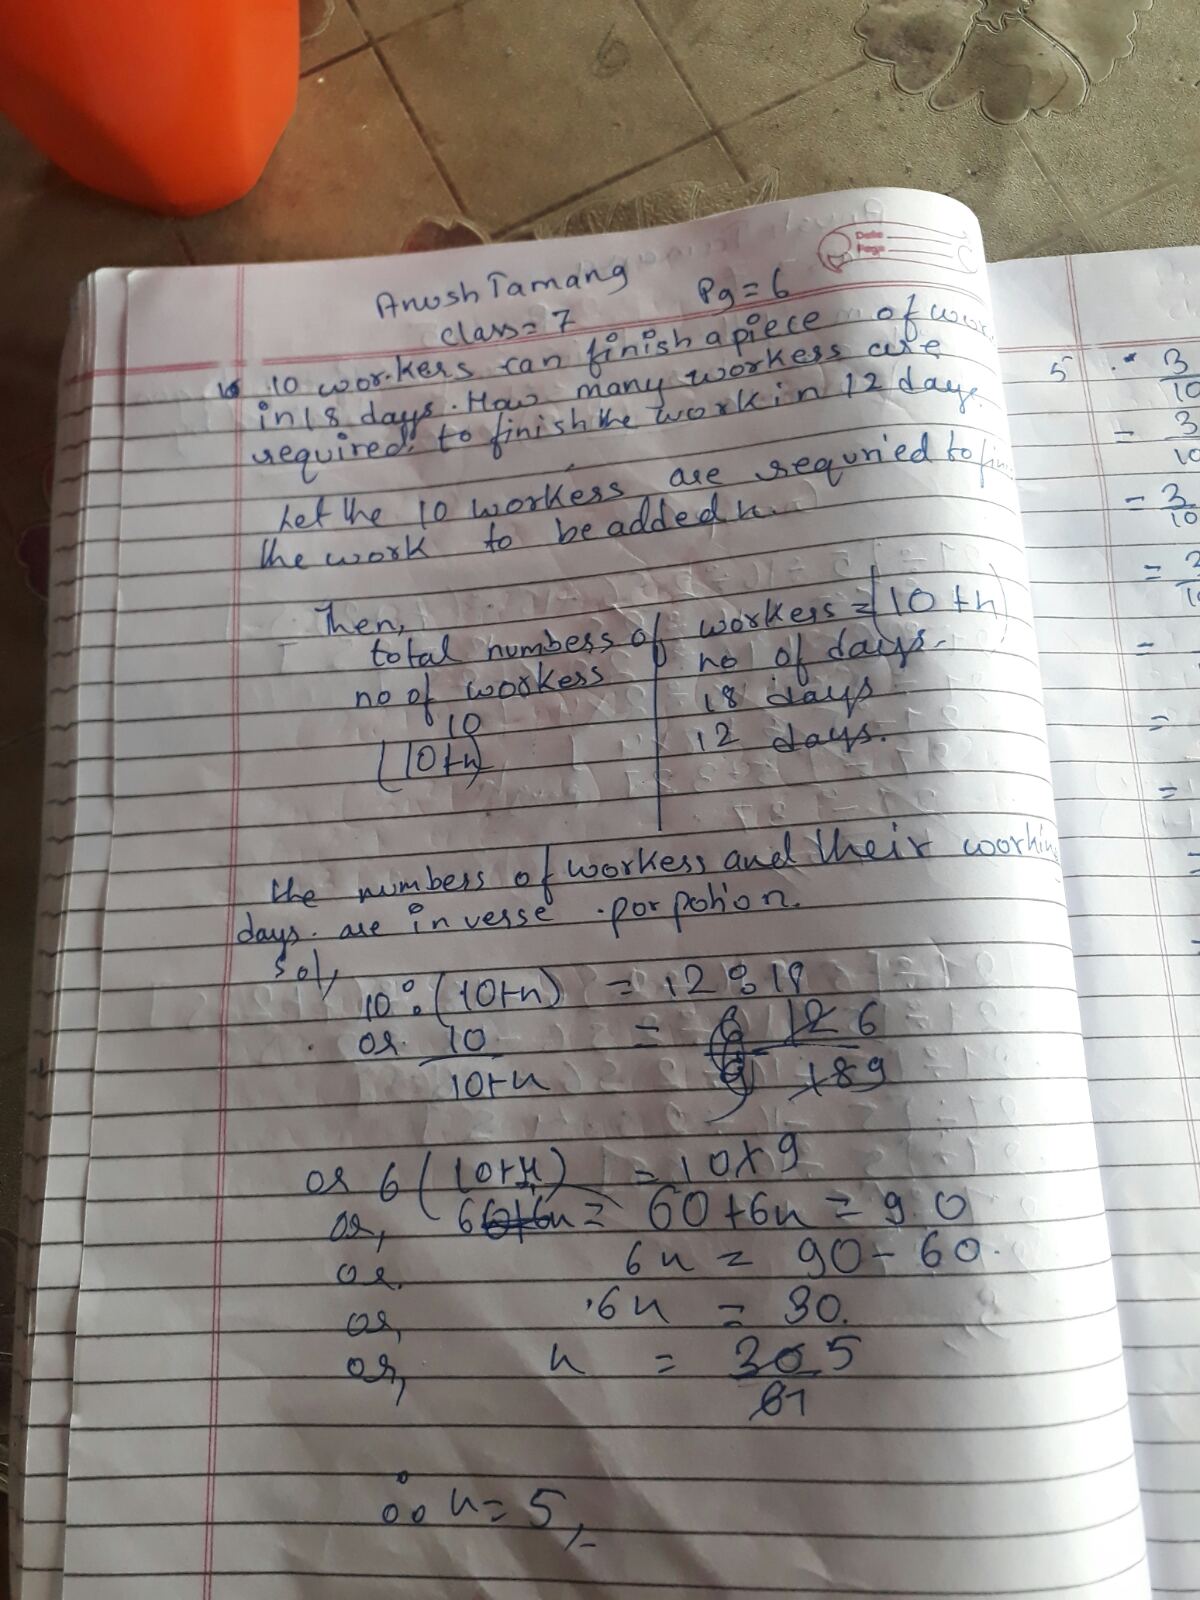 Date
Page
Anush Tamang
class = 7
Pg = 6
10 workers can finish a piece of wor
in 18 days. How many workess are
required to finish the work in 12 days.
Let the 10 workess are requried to fin
the work to be added x.
Then,
total numbess of workess = (10 + x)
no of workess no of days.
10 18 days
(10+x) 12 days.
the numbess of workess and their workin
days. are inverse porpotion.
sol,
10 : (10+x) = 12 : 18
or 10 = 12 6
10+x 18 9
or 6 (10+x) = 10 x 9
or, 60 + 6x = 90
or. 6x = 90 - 60.
or, 6x = 30.
or, x = 30 5
6 1
∴ x = 5
5 3
10
= 3
10
= 3
10
=
=
=
=